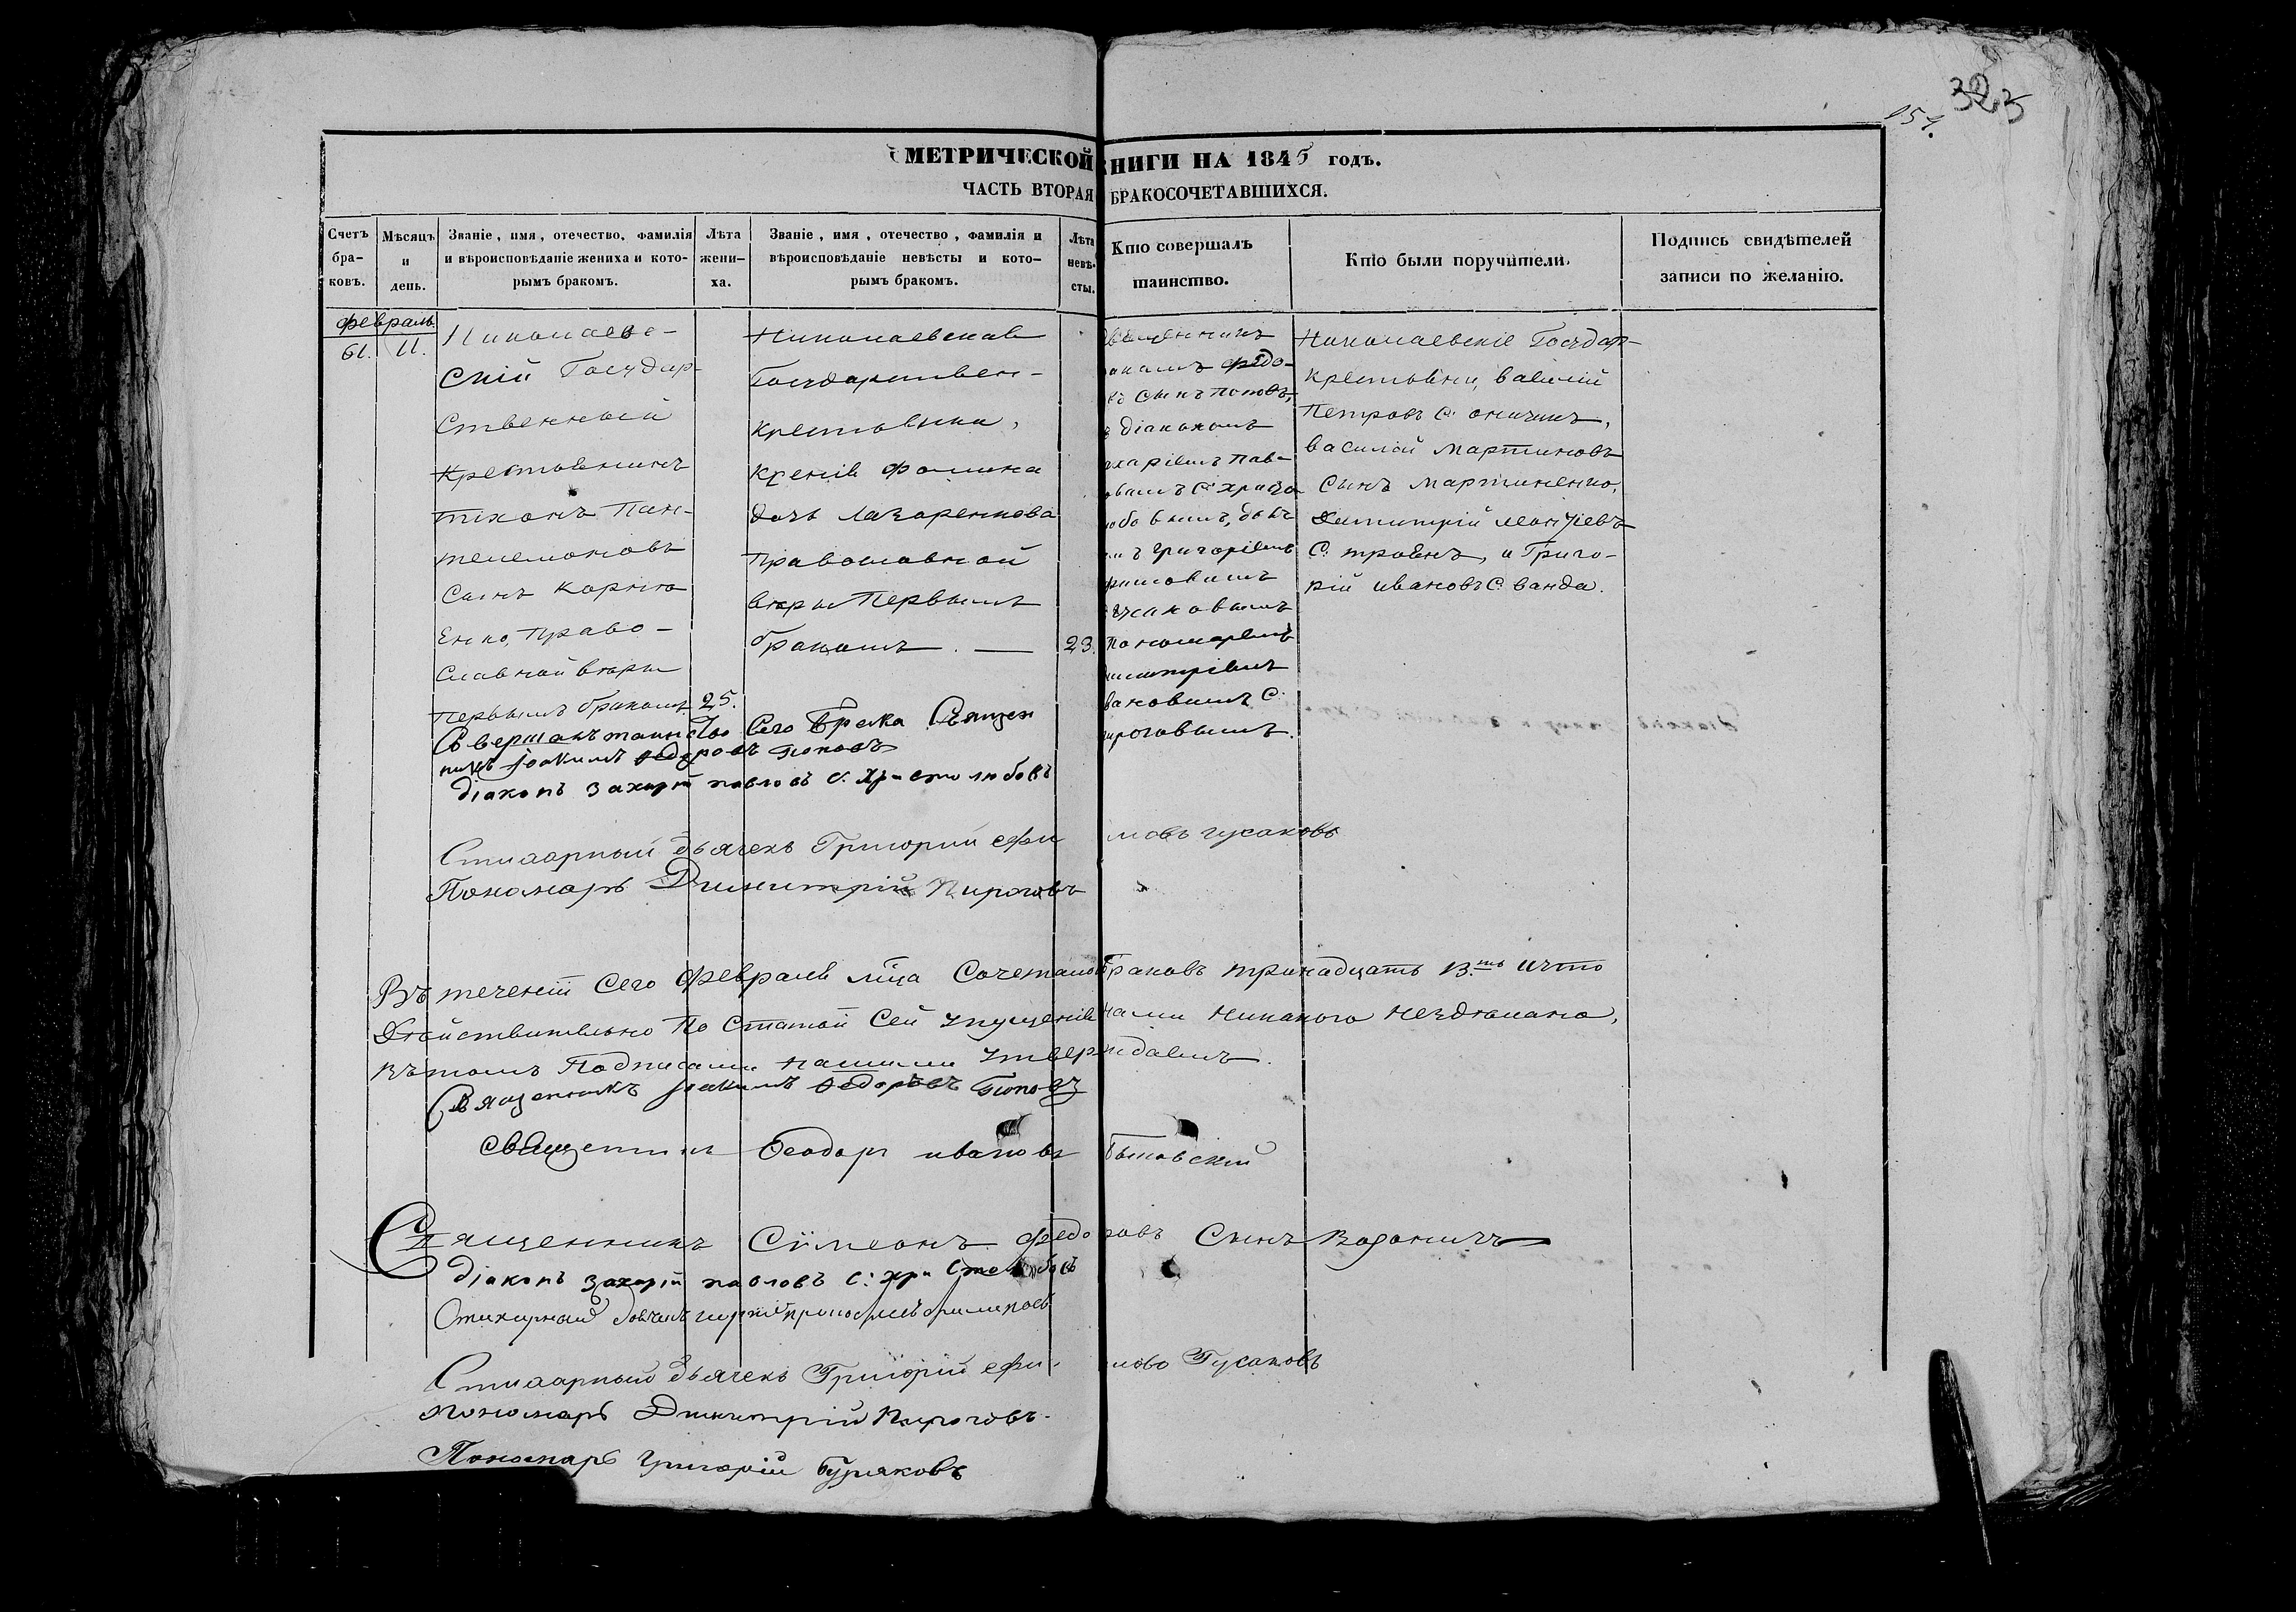 323
151.
МЕТРИЧЕСКОЙ КНИГИ НА 1845 годъ.
ЧАСТЬ ВТОРАЯ БРАКОСОЧЕТАВШИХСЯ.
Счетъ браковъ.
Мѣсяцъ и день.
Званіе, имя, отечество, фамилія и вѣроисповѣданіе жениха и которымъ бракомъ.
Лѣта жениха.
Званіе, имя, отечество, фамилія и вѣроисповѣданіе невѣсты и которымъ бракомъ.
Лѣта невѣсты.
Кто совершалъ таинство.
Кто были поручители.
Подпись свидѣтелей записи по желанію.
февраль
61. 11.
Николаев-
скій Государ-
ственный
Крестьянинъ
тихонъ Пан-
телемоновъ
Сынъ Корніо
Енко, Право-
Славной вѣры
первымъ бракомъ. 25.
Николаевская
Государствен-
крестьянка,
ксенія фомина
дочь Лазаренкова
православной
вѣры Первымъ
бракомъ. — 23.
священникъ
федо-
въ сынъ поповъ,
діакономъ
харіемъ пав-
овымъ С. христо
любовымъ,
григоріемъ
фимовымъ
гусаковымъ
пономаремъ
имитріемъ
вановымъ С.
ироговымъ.
Николаевскіе Государ-
крестьяни, василій
Петровъ С. оничинъ,
василій Мартиновъ
Сынъ Мартиненко,
Димитрій леонтіевъ
С. троянъ, и Григо-
рій ивановъ С. ванда.
Совершалъ таинство Сего Брака Священ
никъ Іоакимъ Ѳедоровъ Поповъ
діаконъ захарій павловъ С. Христолюбовъ
Стихарный дьячекъ Григорій ефимовъ гусаковъ
Пономарь Димитрій Пироговъ
Въ теченіи Сего февраля мца Сочетано браковъ тринадцать 13.ть ичто
Дѣйствительно По Статьи Сей упущенія нами никакого нездѣлано,
въ томъ Подписами нашими утверждаемъ.
Священникъ Іоакимъ Ѳедоровъ Поповъ
священникъ Ѳеодоръ ивановъ
Священникъ Сімеонъ федоровъ Сынъ
діаконъ захарій павловъ С. христолюбовъ
Стихарный
Стихарный дьячекъ Григорій ефимовъ Гусаковъ
пономарь Димитрій Пироговъ.
Пономарь григорій Буряковъ